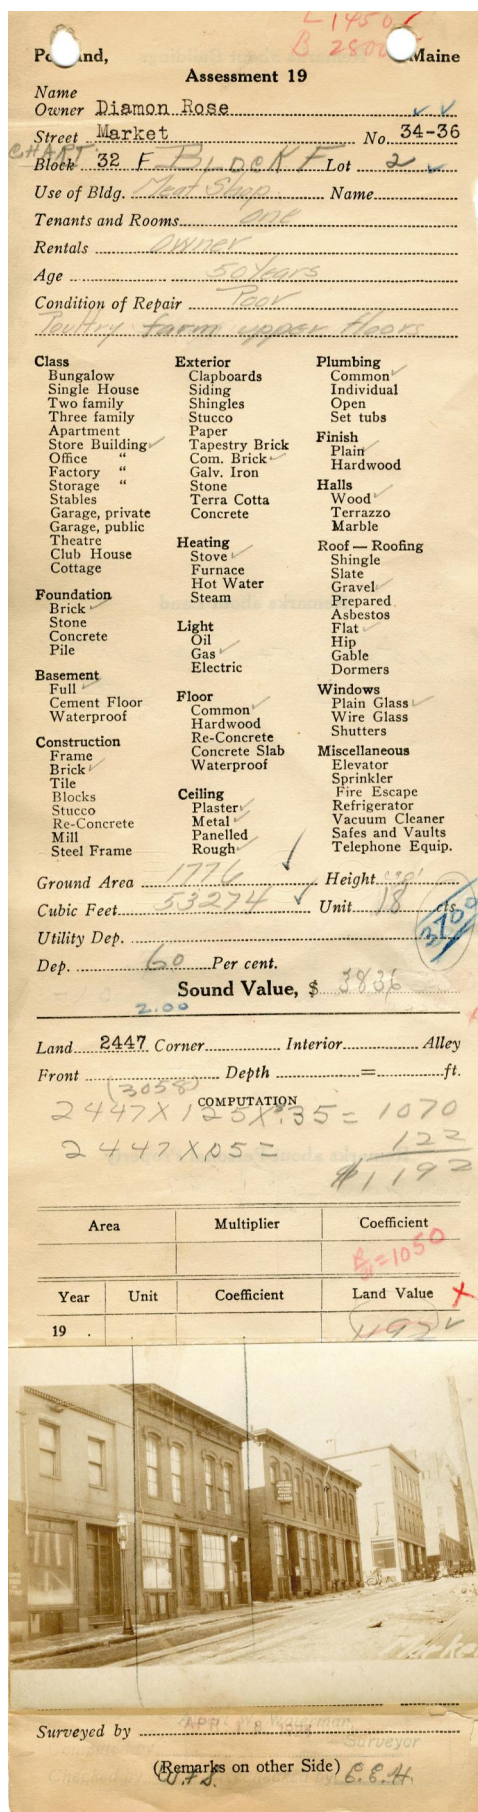 L 1450 ✓
B 2800
Portland, Maine
Assessment 19
Name
Owner Diamon Rose ✓ ✓
Street Market No. 34-36
CHART.
Block 32 F BLOCK F Lot 2 ✓
Use of Bldg. Meat Shop Name
Tenants and Rooms one
Rentals Owner
Age 50 Years
Condition of Repair Poor
Poultry farm upper floors
Class
Bungalow
Single House
Two family
Three family
Apartment
Store Building ✓
Office "
Factory "
Storage "
Stables
Garage, private
Garage, public
Theatre
Club House
Cottage
Foundation
Brick ✓
Stone
Concrete
Pile
Basement
Full ✓
Cement Floor
Waterproof
Construction
Frame
Brick ✓
Tile
Blocks
Stucco
Re-Concrete
Mill
Steel Frame
Exterior
Clapboards
Siding
Shingles
Stucco
Paper
Tapestry Brick
Com. Brick ✓
Galv. Iron
Stone
Terra Cotta
Concrete
Heating
Stove ✓
Furnace
Hot Water
Steam
Light
Oil
Gas ✓
Electric
Floor
Common ✓
Hardwood
Re-Concrete
Concrete Slab
Waterproof
Ceiling
Plaster ✓
Metal ✓
Panelled
Rough ✓
Plumbing
Common ✓
Individual
Open
Set tubs
Finish
Plain ✓
Hardwood
Halls
Wood ✓
Terrazzo
Marble
Roof — Roofing
Shingle
Slate
Gravel ✓
Prepared
Asbestos
Flat ✓
Hip
Gable
Dormers
Windows
Plain Glass ✓
Wire Glass
Shutters
Miscellaneous
Elevator
Sprinkler
Fire Escape
Refrigerator
Vacuum Cleaner
Safes and Vaults
Telephone Equip.
Ground Area 1776 ✓ Height
Cubic Feet 53274 ✓ Unit 18 cts.
3700
Utility Dep.
Dep. 60 Per cent.
Sound Value, $ 3836
2.00
Land 2447 Corner Interior Alley
Front Depth = ft.
(3058)
COMPUTATION
2447 X 125 X .35 = 1070
2447 X 05 = 122
$1192
Area Multiplier Coefficient
= 1050
Year Unit Coefficient Land Value X
19 . 1192 ✓
Surveyed by
Surveyor
(Remarks on other Side)
W.F.S. E.E.H.